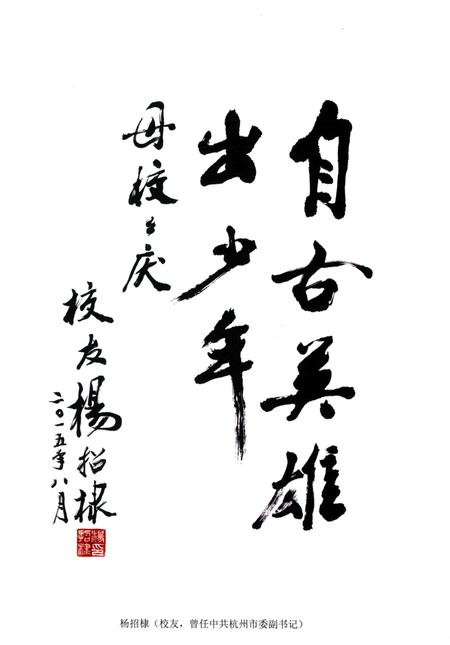 自古英雄
出少年
母校々庆
校友楊招棣
二〇一五年八月
楊印
招棣
杨招棣（校友，曾任中共杭州市委副书记）